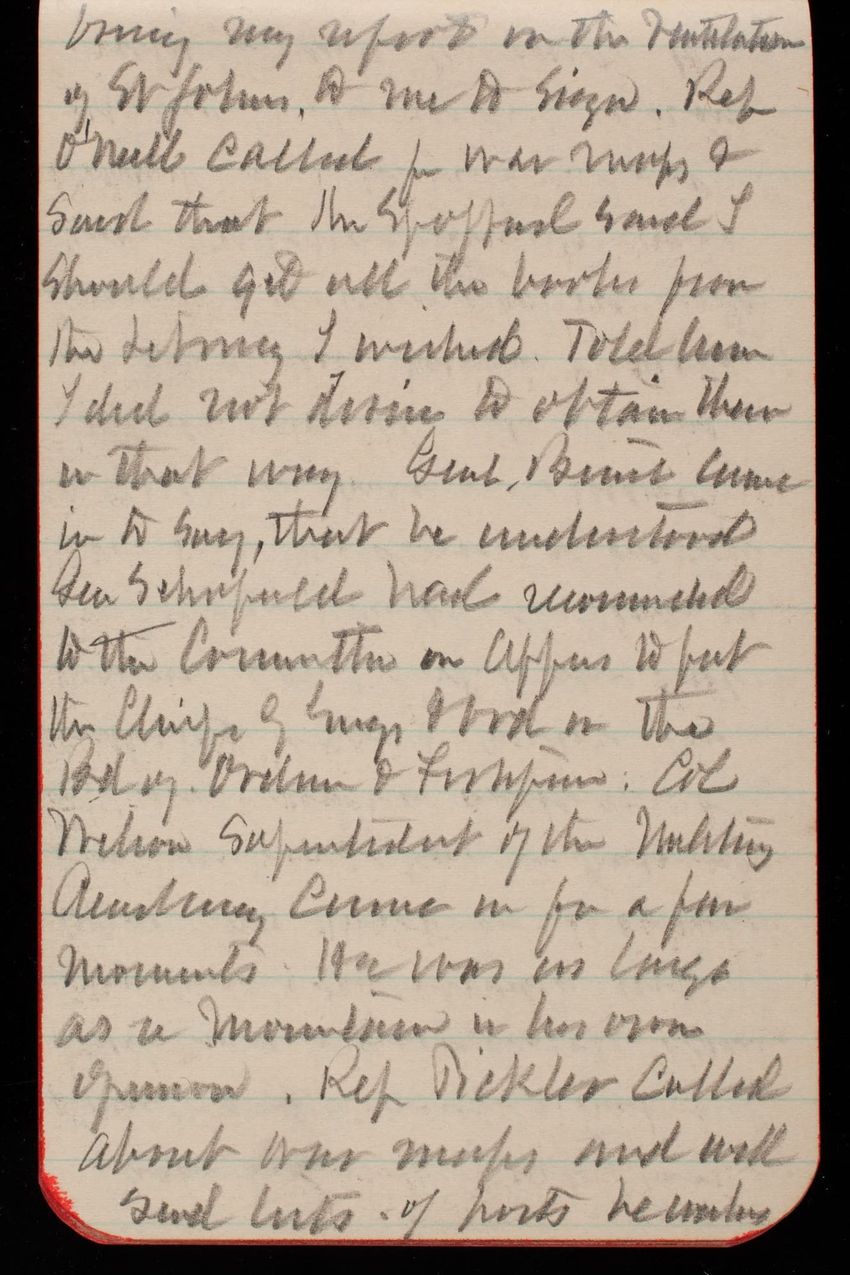 bring my report on the Ventilation
of St Johns, to me to sign. Rep
O'Neill called for war maps &
said that Mr Spofford said I
should get all the books from
the Library I wished. Told him
I did not desire to obtain them
in that way. Genl, Benét came
in to say, that he understood
Gen Schofield had recommended
to the Committee on Apprs to put
the Chiefs of Engs & Ord on the
Bd of. Ordnn & Fortifn. Col
Wilson Supentident of the Military
Academy came in for a few
moments. He was as large
as a Mountain in his own
opinion. Rep Pickler called
about war maps and will
send lists. of posts he wishes